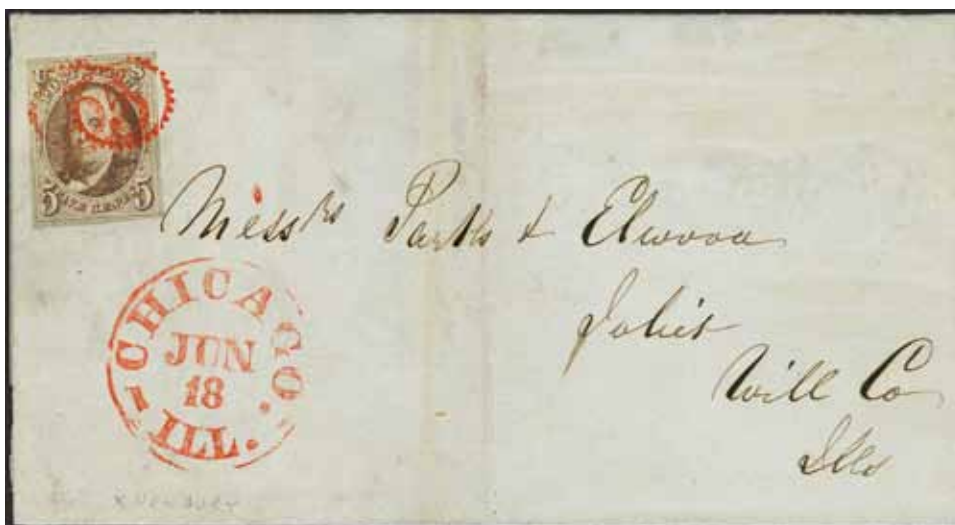 5 5
Messrs Parks & Elwood
Joliet
Will Co
Ills
CHICAGO
JUN
18
ILL.